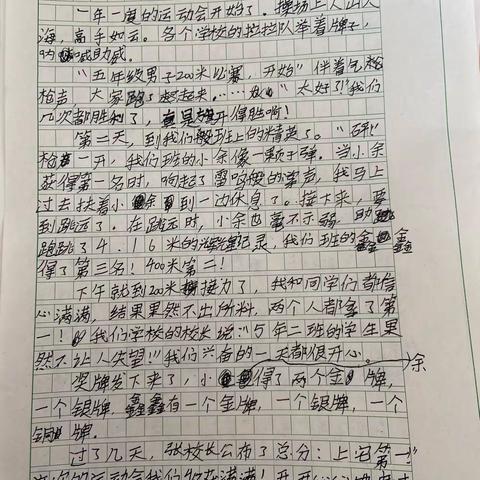 一年一度的运动会开始了。操场上人山人
海，高手如云。各个学校的拉拉队举着牌子，
呐喊助威。
"五年级男子200米比赛，开始"伴着气枪
枪声，大家跑了起来……"太好了！"我们
几次都胜利了，真是旗开得胜啊！
第二天，到我们班上的精英了。"砰！"
枪一开，我们班的小余像一颗子弹。当小余
获得第一名时，响起了雷鸣般的掌声，我马上
过去扶着小余到一边休息了。接下来，要
到跳远了。在跳远时，小余也毫不示弱，助
跑跳了4.16米的记录，我们班的鑫鑫
得了第三名！400米第二！
下午就到200米接力了，我和同学们都信
心满满，结果果然不出所料，两个人都拿了第
一！我们学校的校长说："5年二班的学生果
然不让人失望！"我们兴奋的一天都很开心。
奖牌发下来了，小余得了两个金牌，
一个银牌，鑫鑫有一个金牌，一个银牌，一个
铜牌。
过了几天，张校长公布了总分：上宅第一！